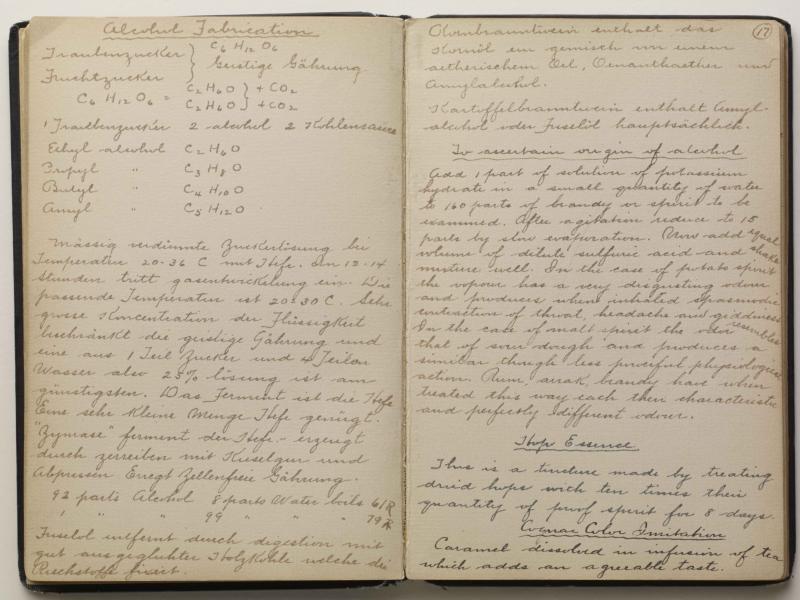 Alcohol Fabrication
Traubenzucker } C6 H12 O6
Fruchtzucker } Geistige Gährung
C6 H12 O6 = C2H6O } + CO2
C2H6O } + CO2
1 Traubenzucker 2 alcohol 2 Kohlensäure
Ethyl alcohol C2H6O
Propyl " C3H8O
Butyl " C4H10O
Amyl " C5H12O
Mässig verdünnte Zuckerlösung bei
Temperatur 20-36 C mit Hefe. In 12-14
Stunden tritt gasentwickelung ein. Die
passende Temperatur ist 20-30C. Sehr
grosse Koncentration der Flüssigkeit
beschränkt die geistige Gährung und
eine aus 1 Teil Zucker und 4 Teilen
Wasser also 25% lösung ist am
günstigsten. Das Ferment ist die Hefe
Eine sehr kleine Menge Hefe genügt.
"Zymase" ferment der Hefe - erzeugt
durch zerreiben mit Kieselgur und
Abpressen Erregt Zellenfreie Gährung.
92 parts Alcohol 8 parts Water boils 61R
1 " " 99 " " " 79R
Fuselöl entfernt durch digestion mit
gut ausgeglühter Holzkohle welche die
Riechstoffe fixirt.
17
Kornbranntwein enthält das
Kornöl ein gemisch von einem
aetherischem Oel, Oenanthaether und
Amylalcohol.
Kartoffelbranntwein enthält Amyl-
alcohol oder Fuselöl hauptsächlich.
To ascertain origin of alcohol
Add 1 part of solution of potassium
hydrate in a small quantity of water
to 160 parts of brandy or spirit to be
examined. After agitation reduce to 15
parts by slow evaporation. Now add equal
volume of dilute sulfuric acid and shake
mixture well. In the case of potato spirit
the vapour has a very disgusting odour
and produces when inhaled spasmodic
contraction of throat, headache and giddiness
In the case of malt spirit the odor resembles
that of sour dough and produces a
similar though less powerful physiological
action. Rum, arrak, brandy have when
treated this way each their characteristic
and perfectly different odour.
Hop Essence
This is a tincture made by treating
dried hops with ten times their
quantity of proof spirit for 8 days.
Cognac Color Imitation
Caramel dissolved in infusion of tea
which adds an agreeable taste.